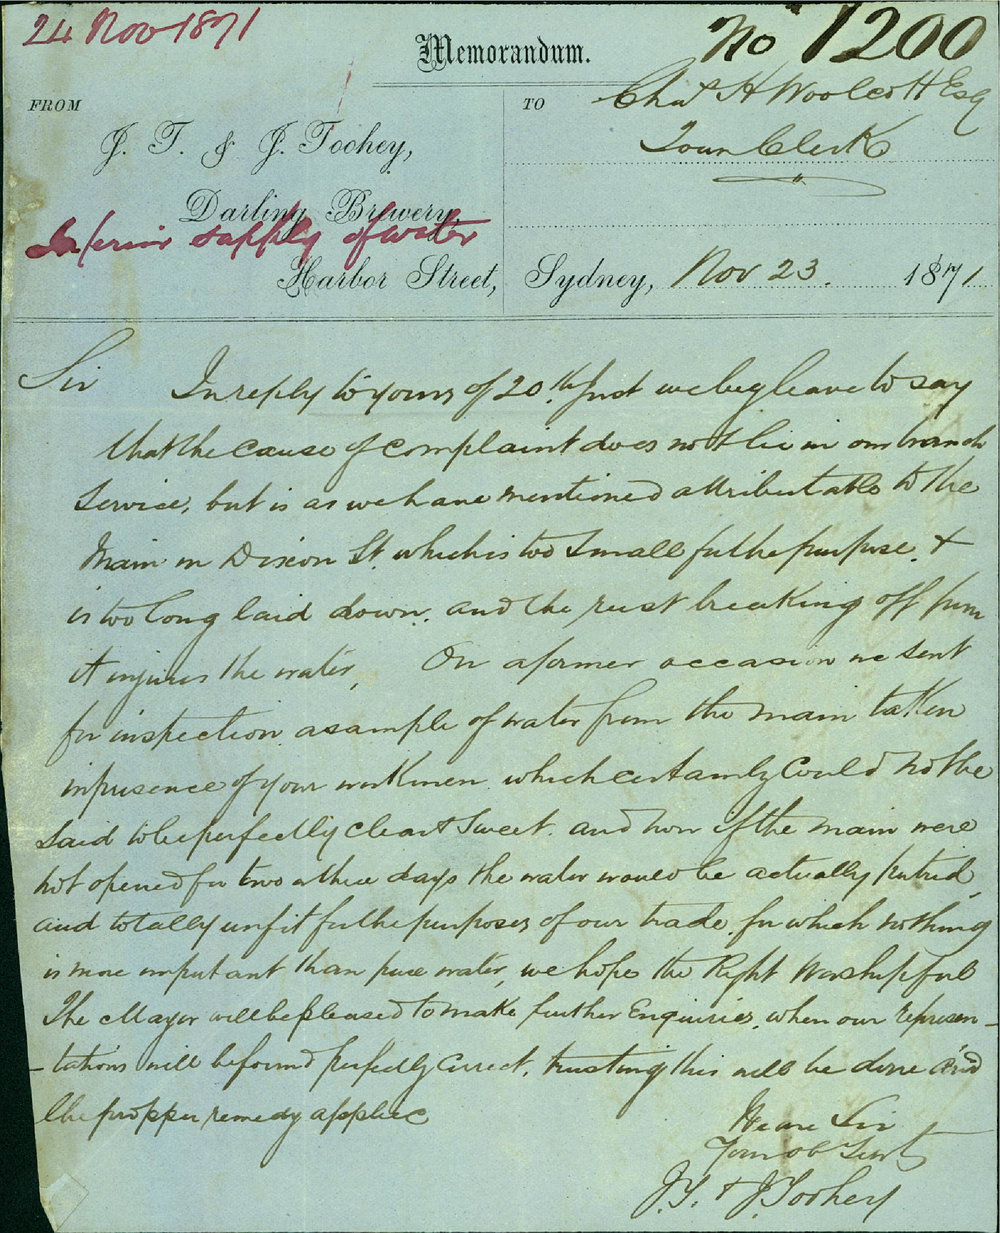 24 Nov 1871
No 1200
Memorandum.
FROM
J. T. & J. Toohey,
Darling Brewery,
Inferior supply of water
Harbor Street,
TO
Chas H Woolcott Esq
Town Clerk
Sydney, Nov 23. 1871
Sir In reply to yours of 20th Inst we beg leave to say
that the cause of complaint does not lie in our branch
service, but is as we have mentioned attributable to the
Main in Dixon St. which is too small for the purpose &
is too long laid down, and the rust breaking off from
it injures the water, On a former occasion we sent
for inspection a sample of water from the main taken
in presence of your workmen which certainly could not be
said to be perfectly clear & sweet. and now if the main were
not opened for two or three days the water would be actually putrid,
and totally unfit for the purposes of our trade, for which nothing
is more important than pure water, we hope the Right Worshipful
The Mayor will be pleased to make further Enquiries, when our represen-
-tations will be found perfectly correct, trusting this will be done and
the propper remedy applied
We are Sir
Your ob Servts
J. T. & J. Toohey